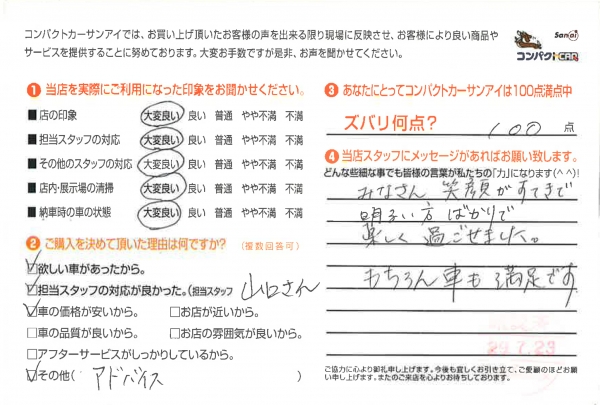 コンパクトカーサンアイでは、お買い上げ頂いたお客様の声を出来る限り現場に反映させ、お客様により良い商品や
サービスを提供することに努めております。大変お手数ですが是非、お声を聞かせてください。
Sanei
コンパクトCAR
❶ 当店を実際にご利用になった印象をお聞かせください。
■店の印象 大変良い 良い 普通 やや不満 不満
■担当スタッフの対応 大変良い 良い 普通 やや不満 不満
■その他のスタッフの対応 大変良い 良い 普通 やや不満 不満
■店内・展示場の清掃 大変良い 良い 普通 やや不満 不満
■納車時の車の状態 大変良い 良い 普通 やや不満 不満
❷ ご購入を決めて頂いた理由は何ですか? (複数回答可)
☑欲しい車があったから。
☑担当スタッフの対応が良かった。(担当スタッフ 山口さん
☑車の価格が安いから。 □お店が近いから。
□車の品質が良いから。 □お店の雰囲気が良いから。
□アフターサービスがしっかりしているから。
☑その他( アドバイス )
❸ あなたにとってコンパクトカーサンアイは100点満点中
ズバリ何点? 100 点
❹ 当店スタッフにメッセージがあればお願い致します。
どんな些細な事でも皆様の言葉が私たちの「力」になります(^^)!
みなさん 笑顔がすてきで
明るい方ばかりで
楽しく過ごせました。
もちろん車も満足です
29.7.23
ご協力に心より御礼申し上げます。今後も宜しくお引き立て、ご愛顧のほどお願
い申し上げます。またのご来店を心よりお待ちしております。